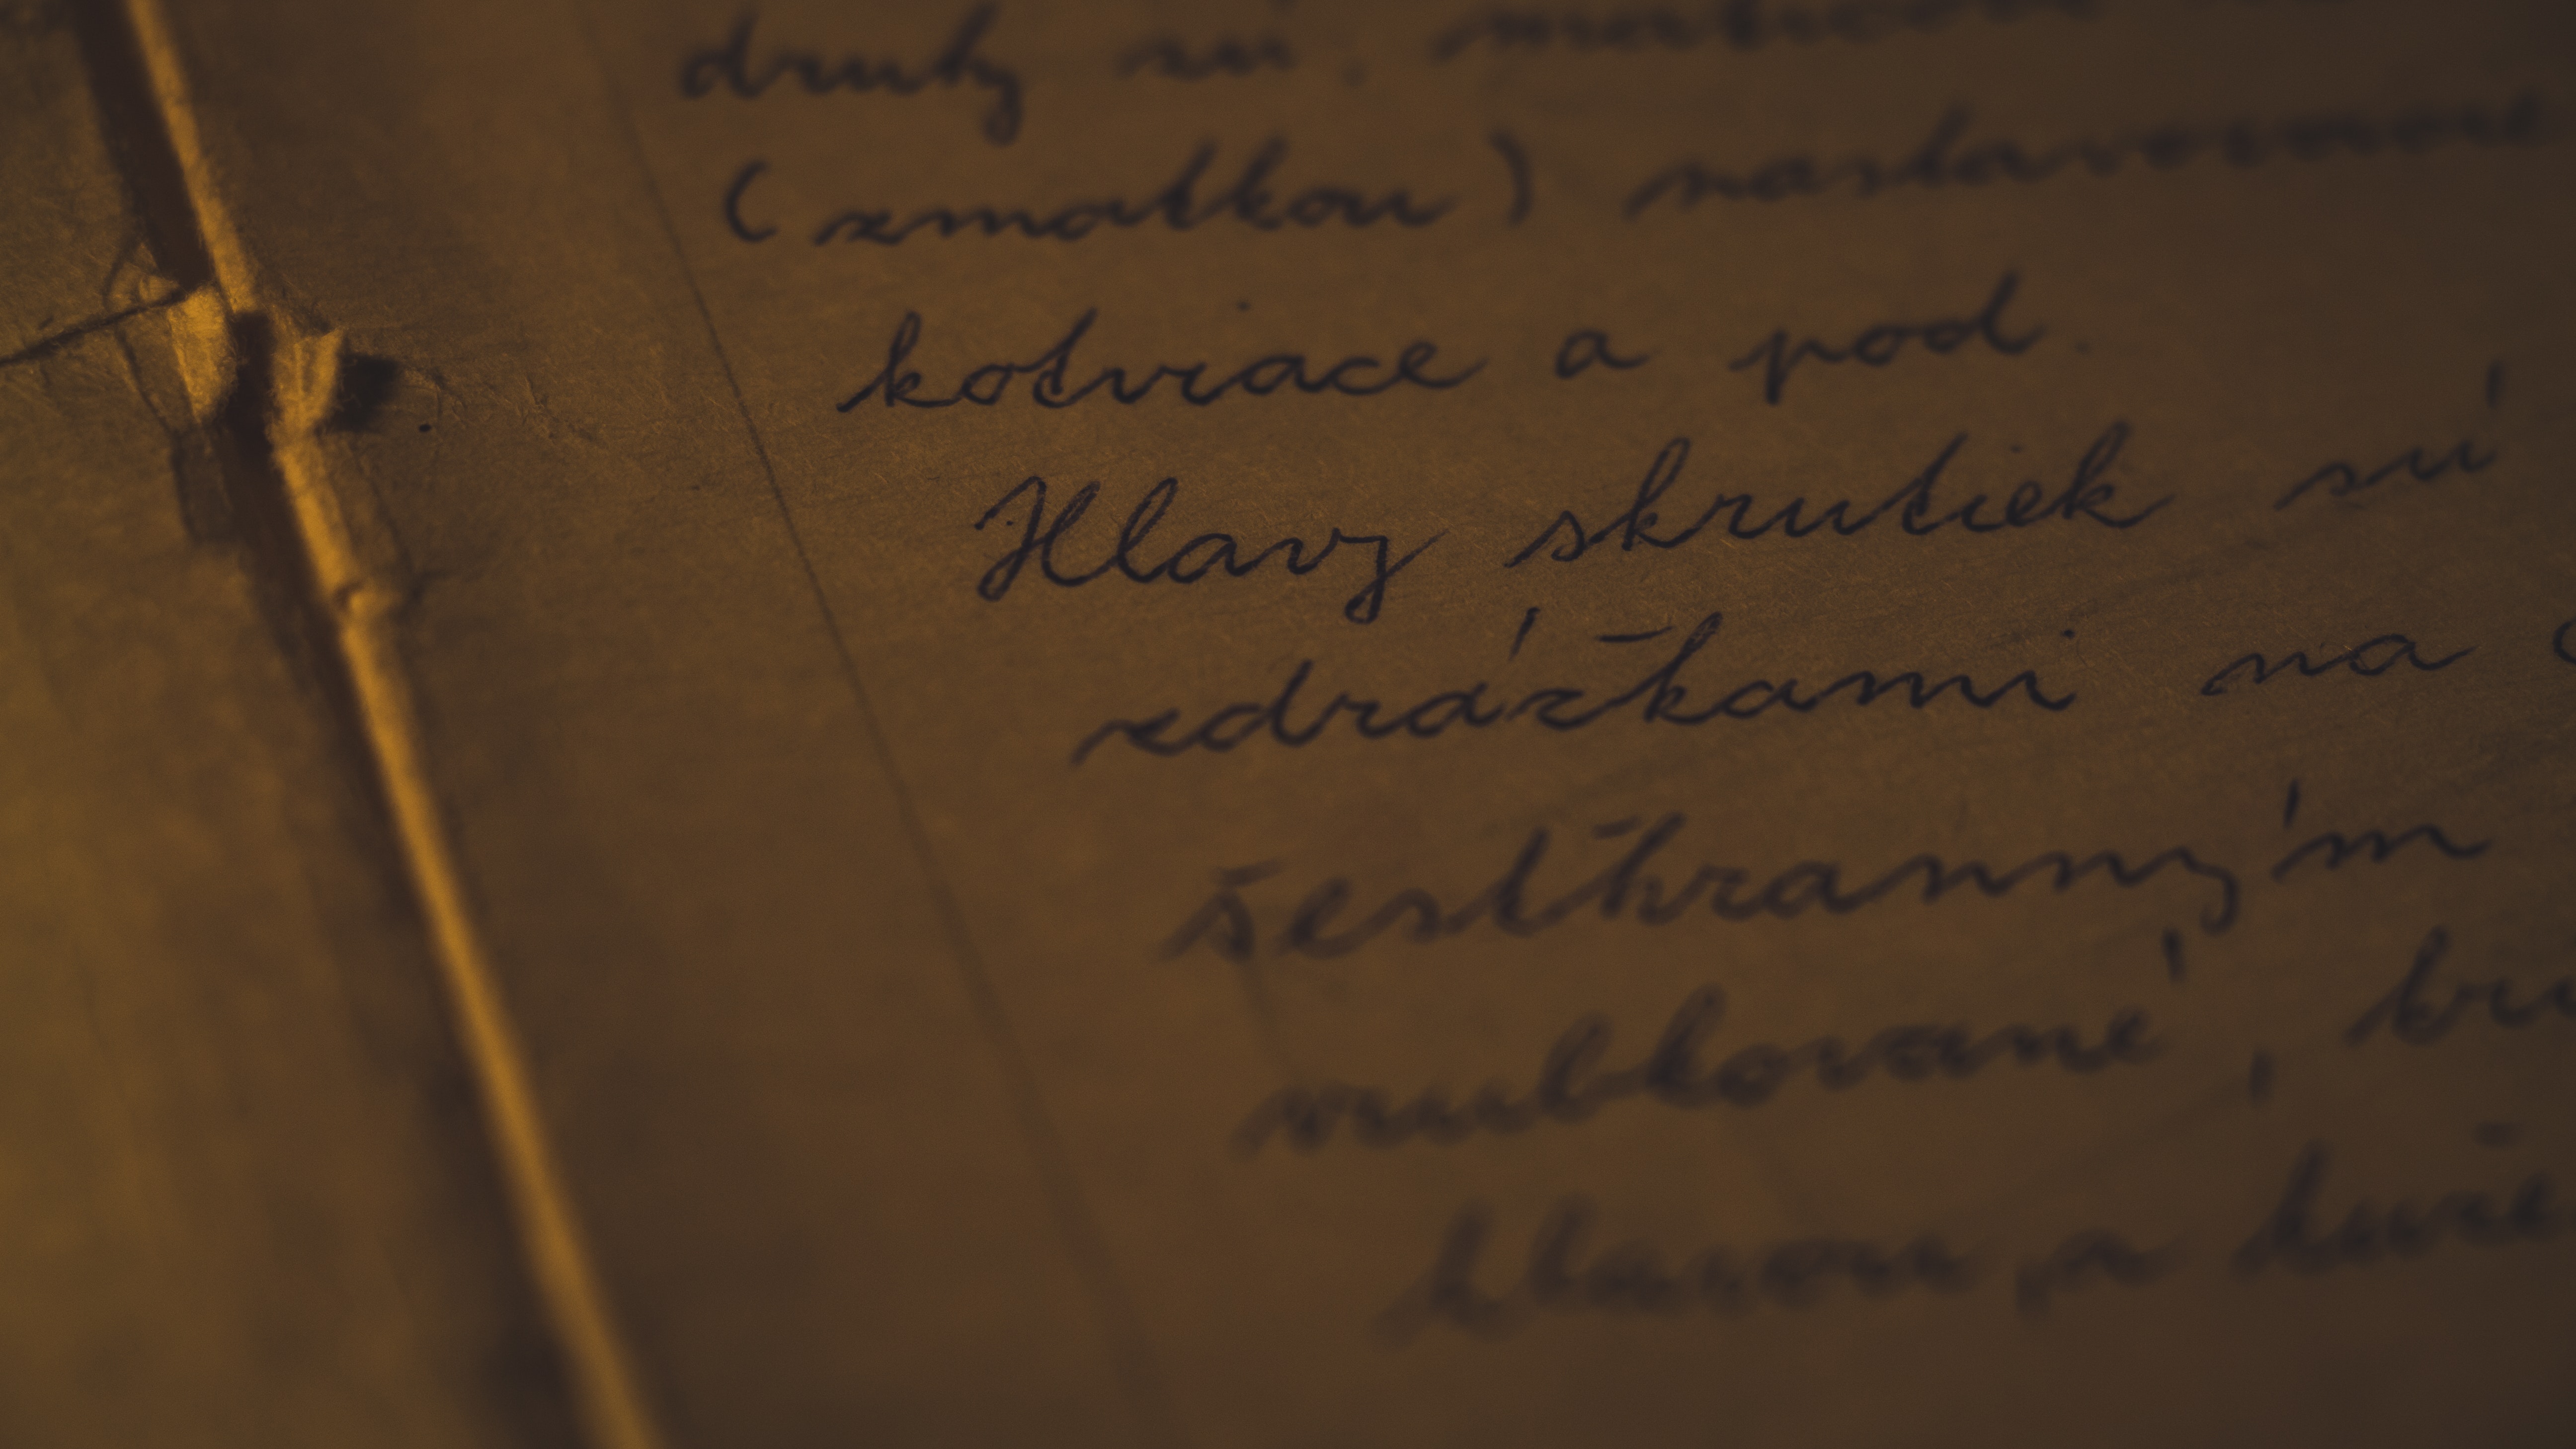 druhy sú. maticové
(zmatkou) nastavovacie
kotviace a pod.
Hlavy skrutiek sú
zdrážkami na
šesťhranným
vrublované,
hlavou, a